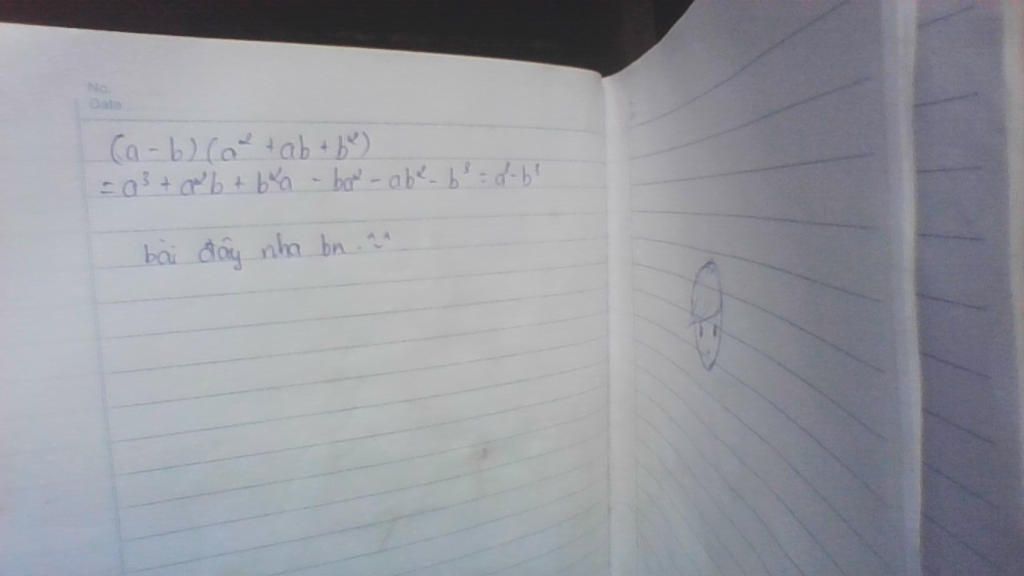 No.
Date
(a - b)(a² + ab + b²)
= a³ + a²b + b²a - ba² - ab² - b³ = a³ - b³
bài đây nha bn.^~^